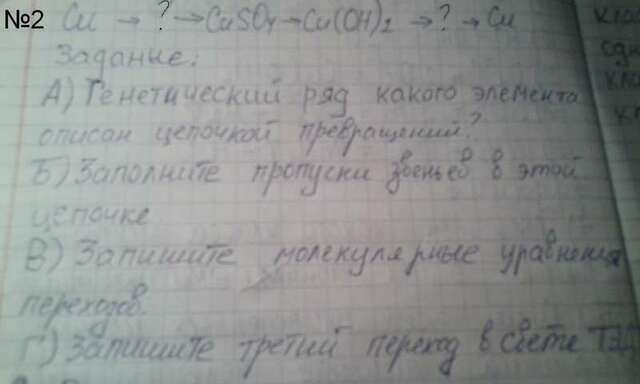 №2 Cu → ? → CuSO4 → Cu(OH)2 → ? → Cu
Задание:
А) Генетический ряд какого элемента
описан цепочкой превращений?
Б) Заполните пропуски звеньев в этой
цепочке
В) Запишите молекулярные уравнения
переходов.
Г) Запишите третий переход в свете ТЭД